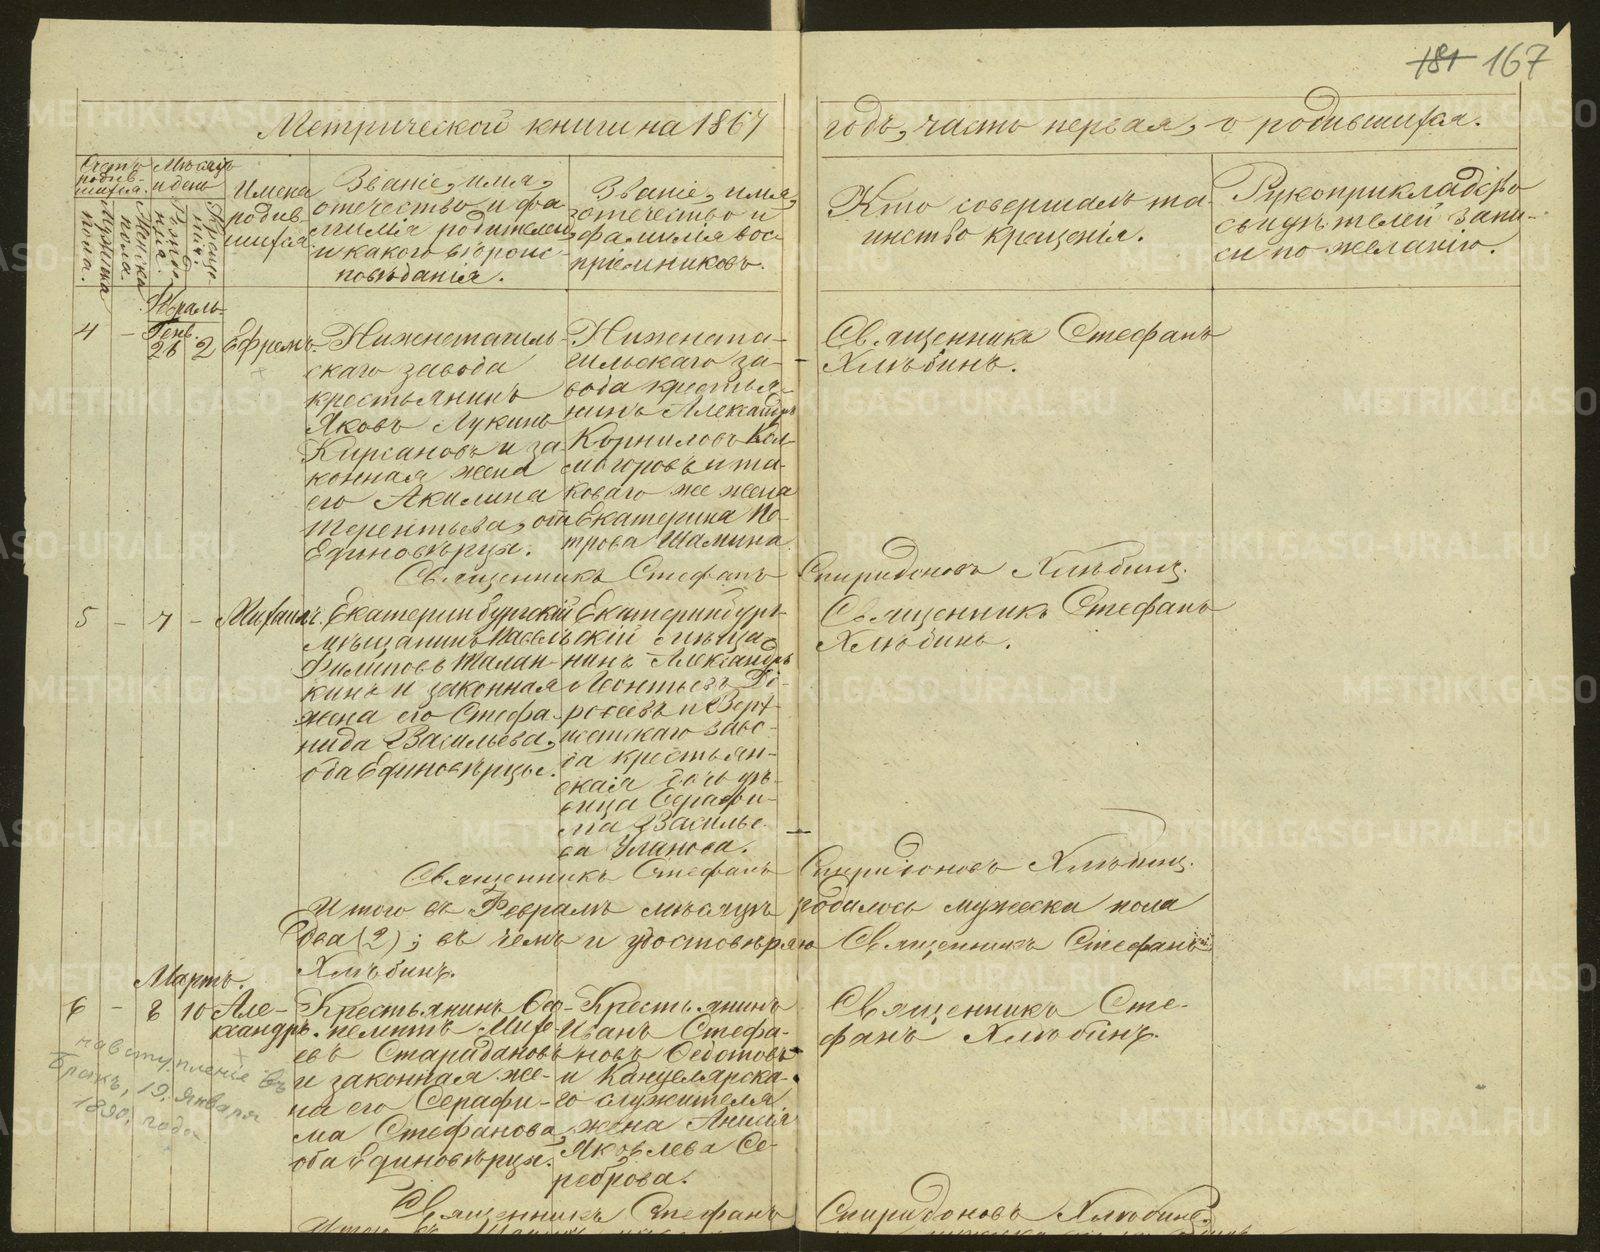 181 167
Метрической книги на 1867
годъ, часть первая, о родившихся.
Счетъ родив-
шихся.
Мужска пола.
Женска пола.
Мѣсяцъ
и день
Рожде-
нія.
Креще-
нія.
Имена
родив-
шихся
Званіе, имя,
отечество и фа
милія родителей
и какого вѣроис-
повѣданія.
Званіе, имя,
отечество и
фамилія вос
пріемниковъ.
Кто совершалъ та-
инство крещенія.
Рукоприкладство
свидѣтелей запи-
си по желанію.
Февраль
4 - Генв. 26 2 Ефремъ.
Нижнетагиль-
скаго завода
крестьянинъ
Яковъ Лукинъ
Кирсановъ и за
конная жена
его Акилина
Терентьева, оба
Единовѣрцы.
Нижнета-
гильскаго за-
вода крестья-
нинъ Александръ
Корниловъ Кол-
могоровъ и та-
коваго же жена
Екатерина Пе-
трова Шамина
Священникъ Стефанъ
Хлѣбинъ.
Священникъ Стефанъ Спиридоновъ Хлѣбинъ.
5 - 7 - Михаилъ.
Екатеринбургскій
мѣщанинъ Василій
Филиповъ Талан-
кинъ и законная
жена его Стефа-
нида Васильева,
оба Единовѣрцы.
Екатеринбург-
скій мѣща-
нинъ Александръ
Леонтьевъ
и Верх-
исетскаго заво-
да крестьян-
ская дочь дѣ-
вица Серафи-
ма Василье-
ва Уланова.
Священникъ Стефанъ
Хлѣбинъ.
Священникъ Стефанъ Спиридоновъ Хлѣбинъ.
Итого въ Февралѣ мѣсяцѣ родилось мужеска пола
два (2); въ чемъ и удостовѣряю Священникъ Стефанъ
Хлѣбинъ.
Мартъ.
6 - 8 10 Але-
ксандръ.
Крестьянинъ Ѳед-
Михе-
евъ Старадановъ
и законная же-
на его Серафи-
ма Стефанова,
оба Единовѣрцы.
Крестьянинъ
Иванъ Стефа-
новъ Ѳедотовъ
и Канцелярска-
го служителя
жена Анисія
Яковлева Се-
реброва.
Священникъ Сте-
фанъ Хлѣбинъ.
на вступленіе въ
бракъ, 19. января
1890. года
Священникъ Стефанъ Спиридоновъ Хлѣбинъ.
METRIKI.GASO-URAL.RU